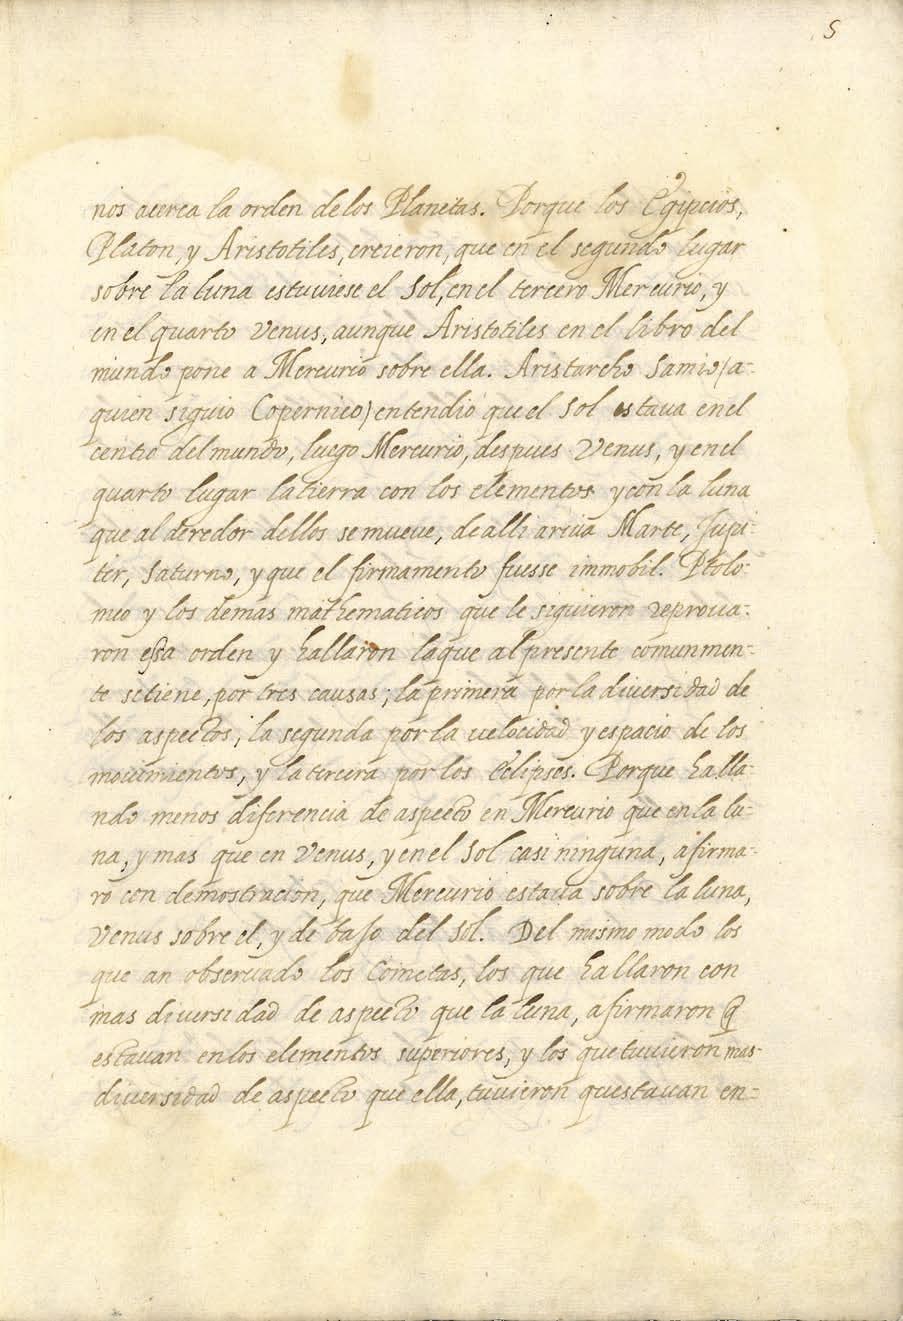 5
nos acerca la orden de los Planetas. Porque los Egipcios,
Platon, y Aristotiles, creieron, que en el segundo lugar
sobre la luna estuuiese el Sol, en el tercero Mercurio, y
en el quarto Venus, aunque Aristotiles en el libro del
mundo pone a Mercurio sobre ella. Aristarcho Samio (a-
quien siguio Copernico) entendio que el Sol estaua en el
centro del mundo, luego Mercurio, despues Venus, y en el
quarto lugar la tierra con los elementos y con la luna
que al deredor dellos se mueue, de alli ariua Marte, Jupi-
ter, Saturno, y que el firmamento fuesse immobil. Ptolo-
meo y los demas mathematicos que le siguieron reproua-
ron essa orden y hallaron la que al presente comunmen-
te se tiene, por tres causas; la primera por la diuersidad de
los aspectos; la segunda por la velocidad y espacio de los
mouimientos, y la tercera por los Eclipses. Porque halla-
ndo menos diferencia de aspecto en Mercurio que en la lu-
na, y mas que en Venus, y en el Sol casi ninguna, afirma-
rō con demostracion, que Mercurio estaua sobre la luna,
Venus sobre el, y de baJo del Sol. Del mismo modo los
que an obseruado los Cometas, los que hallaron con
mas diuersidad de aspecto que la luna, afirmaron q̃
estauan en los elementos superiores, y los que tuuieron mas
diuersidad de aspecto que ella, tuuieron questauan en-